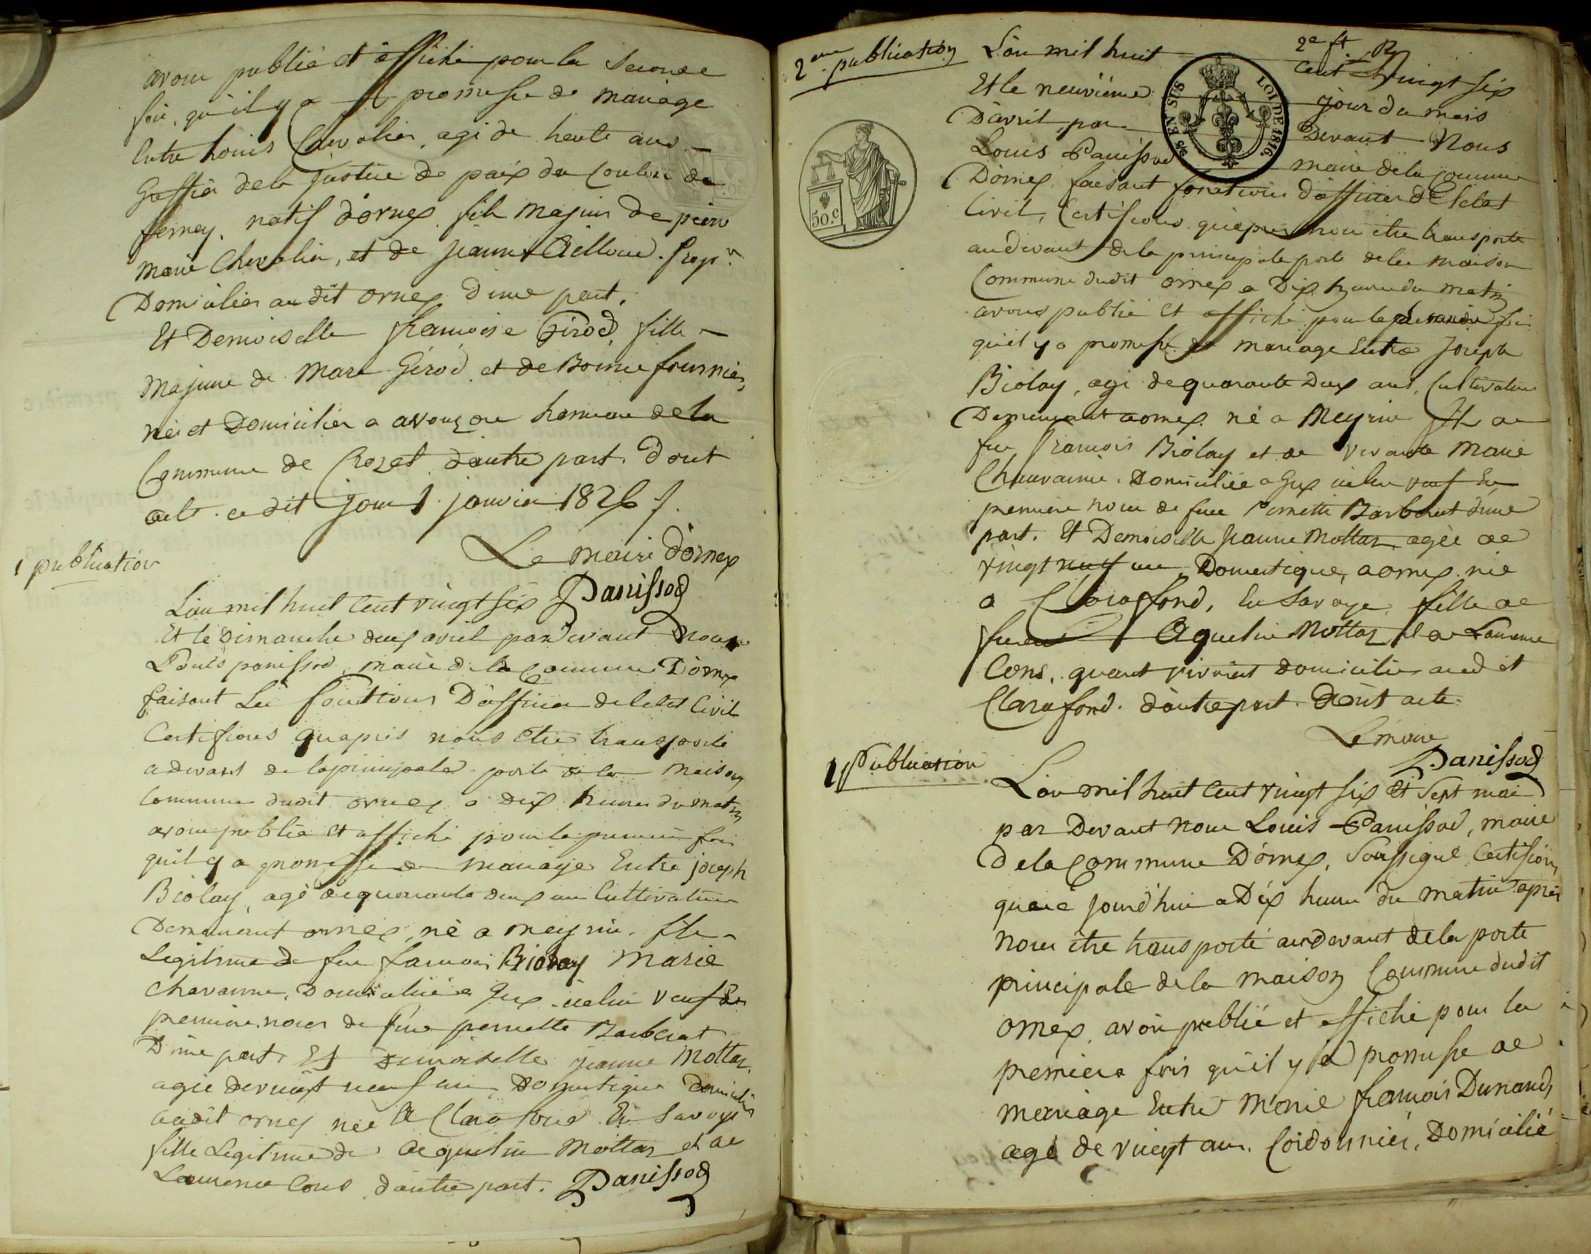 avons publié et affiché pour la seconde
fois, qu'il y a promesse de mariage
Entre Louis Chevalier, agé de trente ans
Greffier de la justice de paix du Canton de
ferney, natif d'ornex fils majeur de pierre
marie Chevalier, et de jeanne
Domiciliés audit ornex d'une part.
Et Demoiselle françoise Girod, fille
majeure de Marc Girod et de fournier,
née et Domiciliée a avouzon hameau de la
Commune de Crozet d'autre part. dont
acte. ce dit jour 1 janvier 1826 /.
Le maire d'ornex
Panissod
1 publication
L'an mil huit Cent vingt six
Et le Dimanche deux avril par devant Nous
Louis panissod, maire de la Commune D'ornex
faisant Les fonctions D'officier de l'etat Civil
Certifions qu'apris nous être transporté
a devant de la principale porte de la Maison
Commune dudit ornex a dix heures du matin
avons publié et affiché pour la premiere fois
qu'il y a promesse de mariage Entre joseph
Biolay, agé de quarante deux ans Cultivateur
Demeurant ornex, né a meyrin. fils
Legitime de feu francois Biolay Marie
Chavanne, Domiciliée a Gex icelui veuf de
premiere noces de feue pernette Barberat
D'une part. Et Demoiselle jeanne Mottaz
agée de vingt neuf ans Domestique domiciliée
audit ornex née A Clarafond En Savoye
fille Legitime de aquelin Mottaz et de
Laurence Cons d'autre part. Panissod
2eme publication
L'an mil huit
2e ft.
Cent vingt six
Et le neuvième jour du mois
D'avril, par Devant Nous
Louis Panissod maire de la Commune
EN SUS
LOI DE 1816
50.c
D'ornex faisant fonctions d'officier de l'etat
Civil, Certifions qu'apres nous etre transporté
au devant de la principale porte de la maison
Commune dudit ornex a Dix heures du matin
avons publié et affiché pour la fois
qu'il y a promesse de mariage Entre Joseph
Biolay, agé de quarante Deux ans, Cultivateur
Demeurant a ornex né a Meyrin fils de
feu francois Biolay et de vivante Marie
Chavanne. Domiciliée a Gex icelui veuf En
premiere noces de feue Pernette Barberat d'une
part. Et Demoiselle Jeanne Mottaz agée de
vingt neuf ans Domestique, a ornex née
a Clarafond, En Savoye, fille de
feu Aquelin Mottaz et de Laurence
Cons, quant vivoient domiciliés audit
Clarafond. d'autre part. Dont acte.
Le maire
Panissod
1 Publication
L'an mil huit Cent vingt six Et Sept mai
par Devant nous Louis Panissod, maire
De la Commune D'ornex, Soussigné Certifions
que ce jourd'hui a Dix heures du matin après
nous être transporté au devant de la porte
principale de la maison Commune dudit
ornex, avoir publié et affiché pour la
premiere fois qu'il y a promesse de
mariage Entre francois Dunand,
agé de vingt ans. Cordonnier, Domicilié